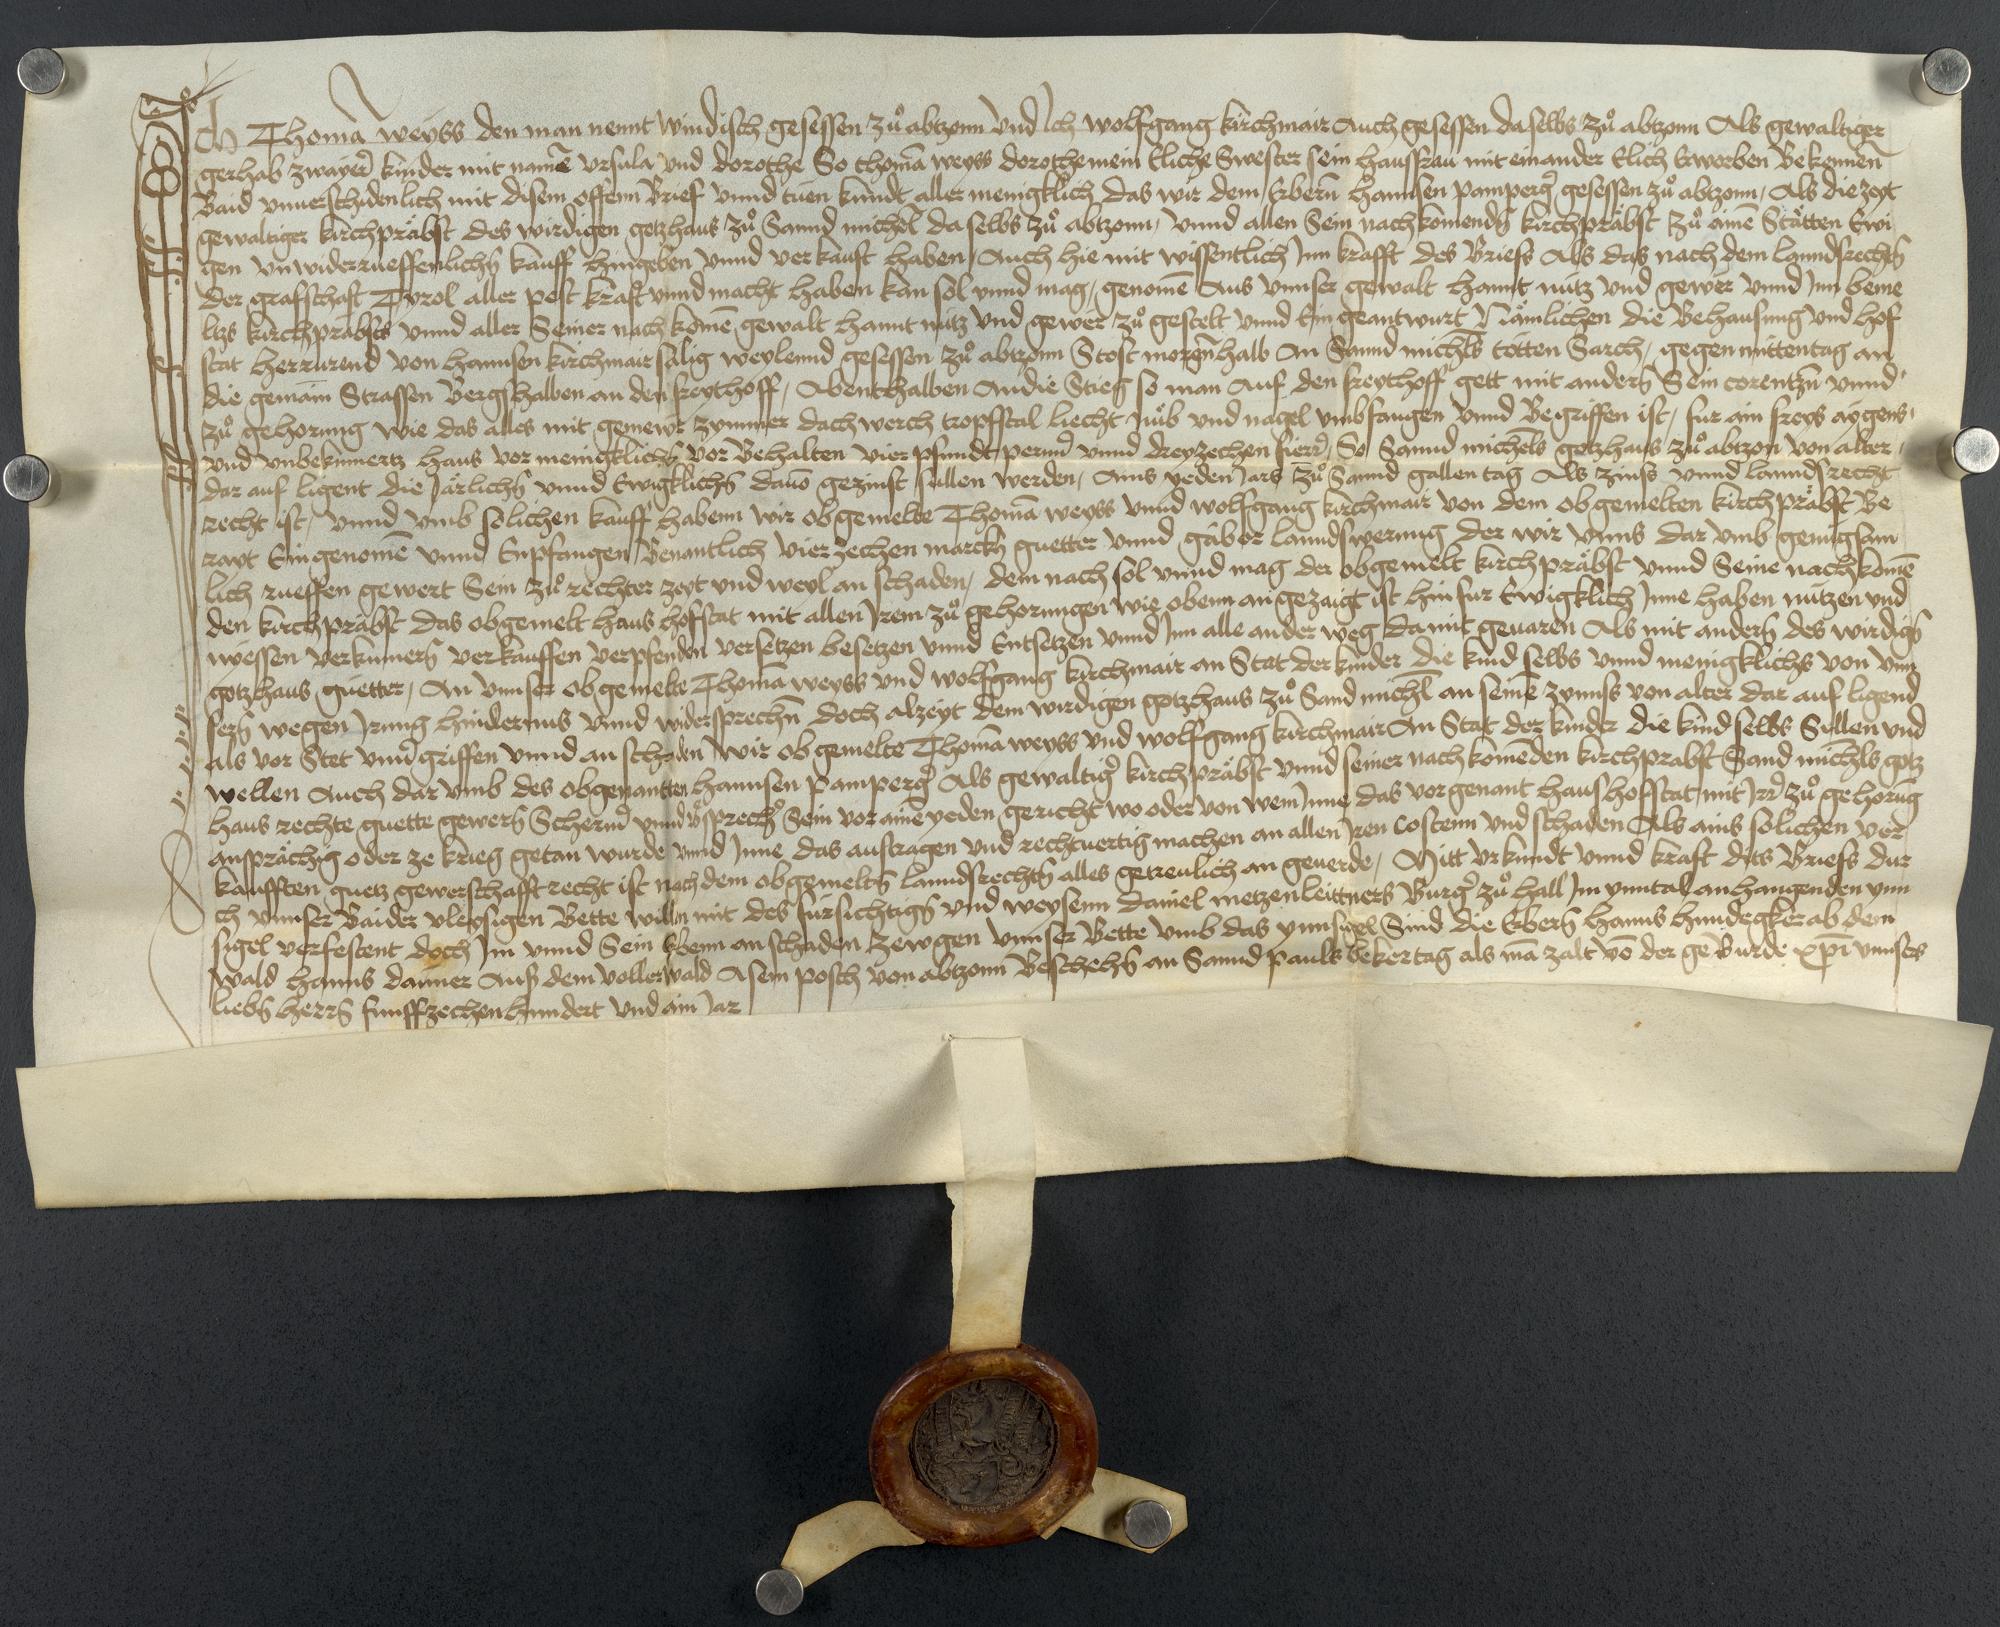 Ich Thoman weyss den man nennt Windisch gesessen zů abtzonn Vnd Ich wolfgang kirchmair Auch gesessen daselbs zů abtzonn Als gewaltiger
gerhab zwayer kinder mit namē vrsula vnd dorothe So thoman weyss dorothe mein Eliche Swester sein hausfrau mit einander Elich Erworben Bekennen
Baid vnuerschidenlich mit disem offenn Brief vnnd tuen kundt aller menigklich das wir dem Erbern hannsen pamperger gesessen zů abtzonn / Als die zeyt
gewaltiger kirchpräbst des wirdigen gotzhaus zů Sannd michel da selbs zů abtzonn / vnnd allen Sein nachkomenden kirchpräbst zů aimē Stätten Ewi
gen vnwiderrueffenlichen kauff hingeben vnnd verkauft haben / Auch hie mit wissentlich Inn krafft des Briefs Als das nach dem lanndsrechten
der grafschaft Tyrol aller pest kraft vnnd macht haben kan sol vnnd mag / genomē Aus vnnser gewalt hannt nutz vnd gewer vnnd Inn beme
lts kirchpräbsts vnnd aller Seiner nachkomē gewalt hannt nutz vnd gewer zů gestelt vnnd Eingeantwurt Nämlichen die Behausung vnd hof
stat herrurend von hannsen kirchmair sälig weylennd gesessen zů abtzonn Stost morgenhalb an Sannd michels totten Sarch / gegen mittentag an
die gemäin Strassen Bergshalben an den freythoff / Abenthalben an die Stieg so man Auf den freythoff gett mit andern Sein corentzn vnnd
zů gehorung wie das alles mit gemewr zymmer dachwerch tropfstal liecht nub vnd nagel vmbfangen vnnd Begriffen ist / fur ain freys aygens
vnd vnbekumertz haus vor menigklichen vor Behalten vier pfundt perner vnnd dreyzechen fierer / So Sannd michels gotzhaus zů abtzon von alter
dar auf ligent die Järlichen vnnd Ewigklichen dauō gezinst sullen werden / Ains yeden Jars zů Sannd gallen tag Als zinss vnnd lanndsrecht
recht ist / vnnd vmb solichen kauff habenn wir obgemelte Thoman weyss vnnd wolfgang kirchmair von dem obgemelten kirchpräbst Be
rayt Eingenomē vnnd Enpfangen Benantlich vierzechen marckh guetter vnnd gäber lanndswerung der wir vnns dar vmb genugsam
lich rueffen gewert Sein zů rechter zeyt vnd weyl an schaden / dem nach sol vnnd mag der obgemelt kirchpräbst vnnd Seine nachkomē
den kirchpräbst das obgemelt haus hofstat mit allen Irem zů gehorungen wie obenn angezaigt ist hinfur Ewigklich Inne haben nutzen vnd
niessen verkumern verkauffen verpfenden versetzen besetzen vnnd Entsetzen vnnd Inn alle ander weg damit geuaren Als mit andern des wirdign
gotzhaus guetter / An vnnser obgemelte Thoman weyss vnd wolfgang kirchmair an Stat der kinder die kind selbs vnnd menigklichs von vnn
sern wegen Irung hindernus vnnd widersprechn doch alzeyt dem wirdigen gotzhaus zů Sand michel an seinē zynnss von alter dar auf ligend
als vor Stet vnuergriffen vnnd an schaden wir obgemelte Thoman weyss vnd wolfgang kirchmair An Stat der kinder die kind selbs Sullen vnd
wellen Auch dar vmb des obgenantten hannsen pamperger Als gewaltiger kirchpräbst vnnd seiner nachkomēden kirchprabst Sand michels gotz
haus rechte guette gewern Schermer vnnd versprecher Sein vor aine yeden gericht wo oder von wem Inne das vorgenant haus hofstat mit Irer zů gehorung
ansprächig oder ze krieg getan wurde vnnd Inne das austragen vnd rechtuertig machen an allen Iren costenn vnd schaden Als ains solichen ver
kaufften guetz gewerschafft recht ist nach dem obgemelten lanndsrechten alles getreulich an geuerde / Mitt vrkundt vnnd kraft dits Briefs dur
ch vnnser Baider vleysigen Bette willn mit des fursichtigen vnd weysenn daniel metzenleittners Burger zů hall Im ynntal anhangenden ynn
sigel verfestent doch Im vnnd Sein Erbenn an schaden zewgen vnnser Bette vmb das ynnsigel Sind die Erbern hanns hundegker ab dem
wald hanns danner Auss dem vollerwald Asem posch von abtzonn Beschechen an Sannd pauls bekertag als mā zalt vō der geburde xpi vnnses
liebn herrn funffzechenhundert vnd ain Jar